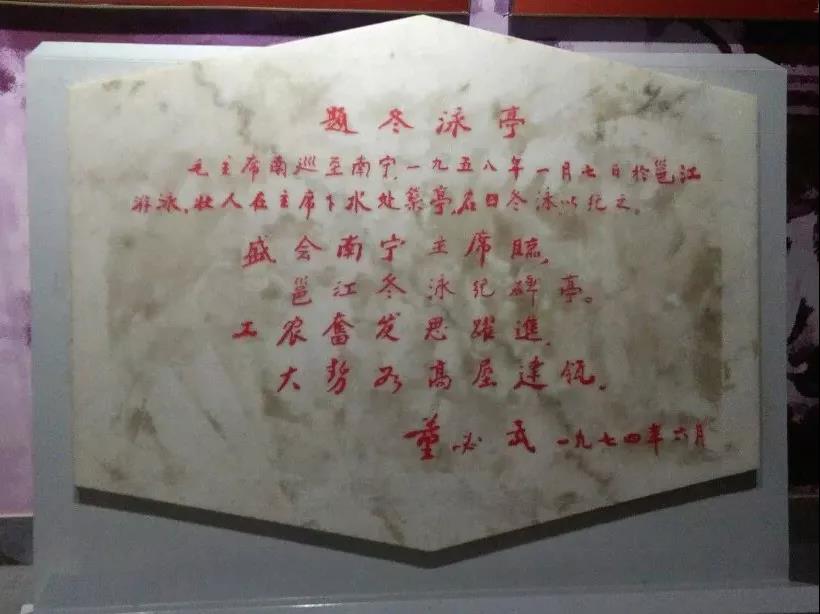 题冬泳亭
毛主席南巡至南宁,一九五八年一月七日於邕江
游泳,壮人在主席下水处筑亭,名曰冬泳以纪之。
盛会南宁主席临,
邕江冬泳纪碑亭。
工农奋发思躍進,
大势如高屋建瓴。
董必武 一九七四年六月